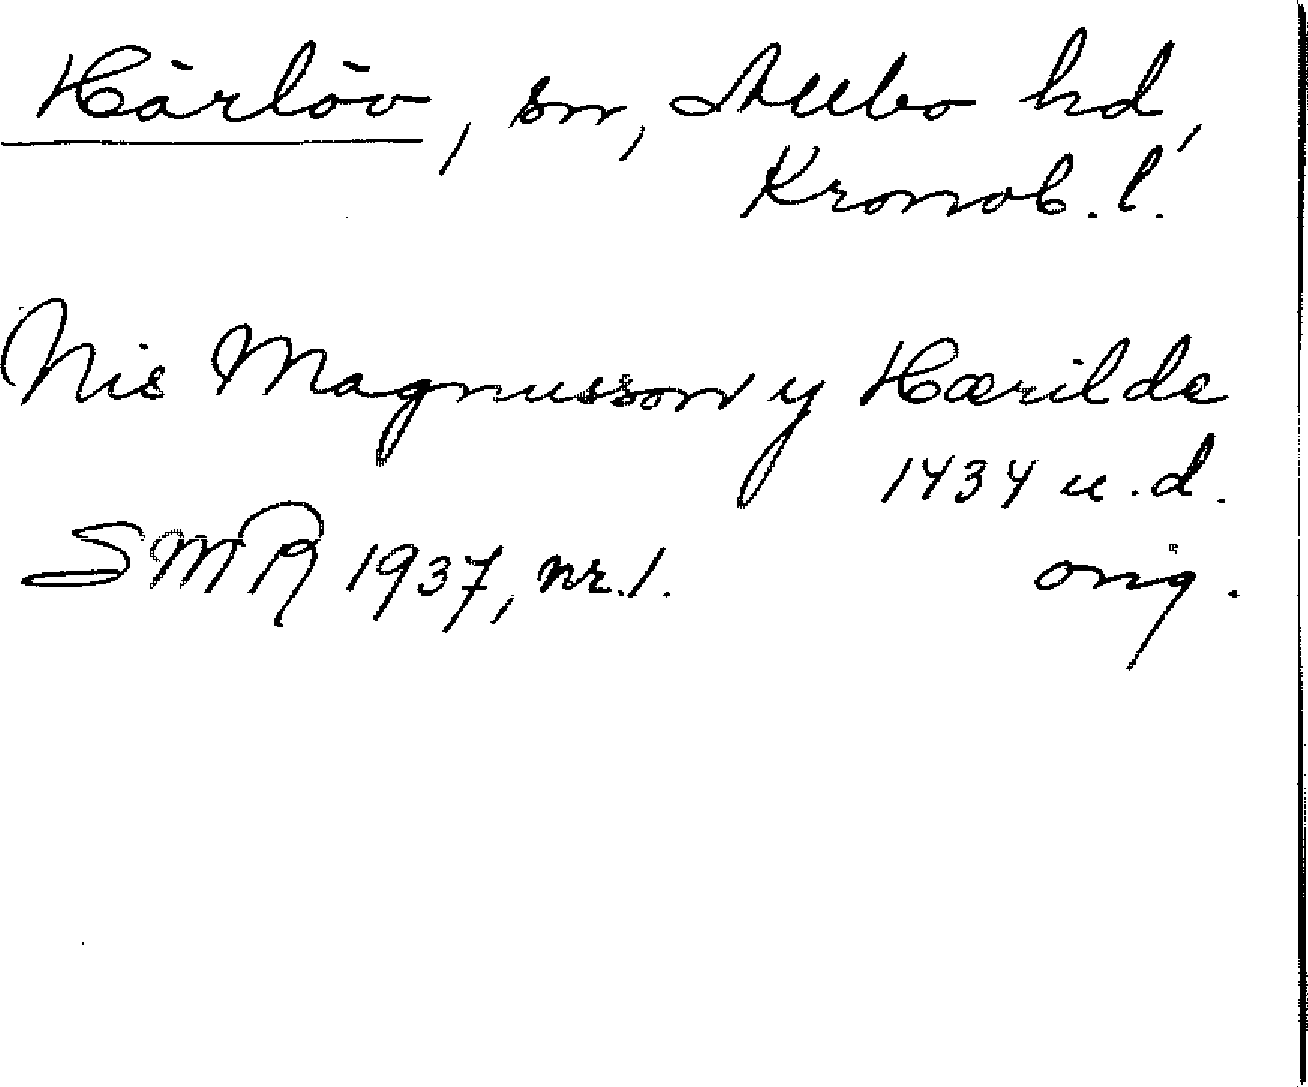 Härlöv, sn, Allbo hd,
Kronob. l.
Nis Magnusson y Hærilde
1434 u.d.
SMR 1937, nr. 1. orig.